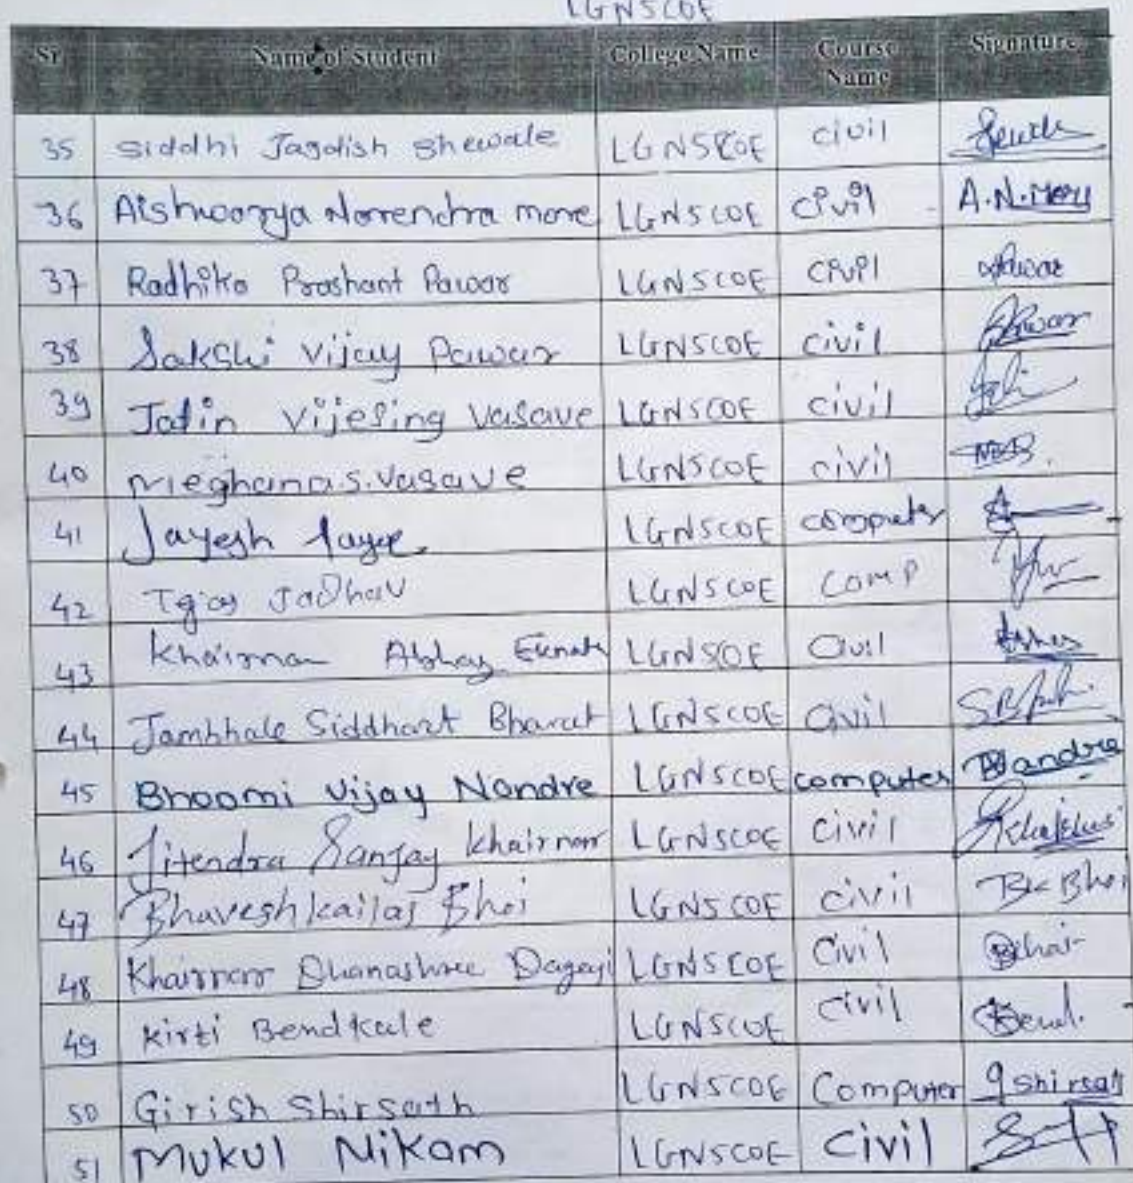 LGNSCOE
Sr Name of Student College Name Course Name Signature
35 Siddhi Jagdish Shewale LGNSCOE civil
36 Aishwarya Narendra more LGNSCOE civil A.N.More
37 Radhika Prashant Pawar LGNSCOE civil Pawar
38 Sakshi Vijay Pawar LGNSCOE civil Pawar
39 Jatin Vijesing Vasave LGNSCOE civil
40 Meghana S. Vasave LGNSCOE civil
41 Jayesh LGNSCOE computer
42 Tejas Jadhav LGNSCOE comp
43 Khairnar Abhay Eknath LGNSCOE Civil
44 Jambhale Siddhart Bharat LGNSCOE Civil
45 Bhoomi Vijay Nandre LGNSCOE computer Nandre
46 Jitendra Sanjay Khairnar LGNSCOE civil
47 Bhavesh kailas Bhoi LGNSCOE civil Bk Bhoi
48 Khairnar Dhanashree Dagaji LGNSCOE Civil
49 Kirti Bendkule LGNSCOE civil
50 Girish Shirsath LGNSCOE Computer gshirsat
51 Mukul Nikam LGNSCOE Civil